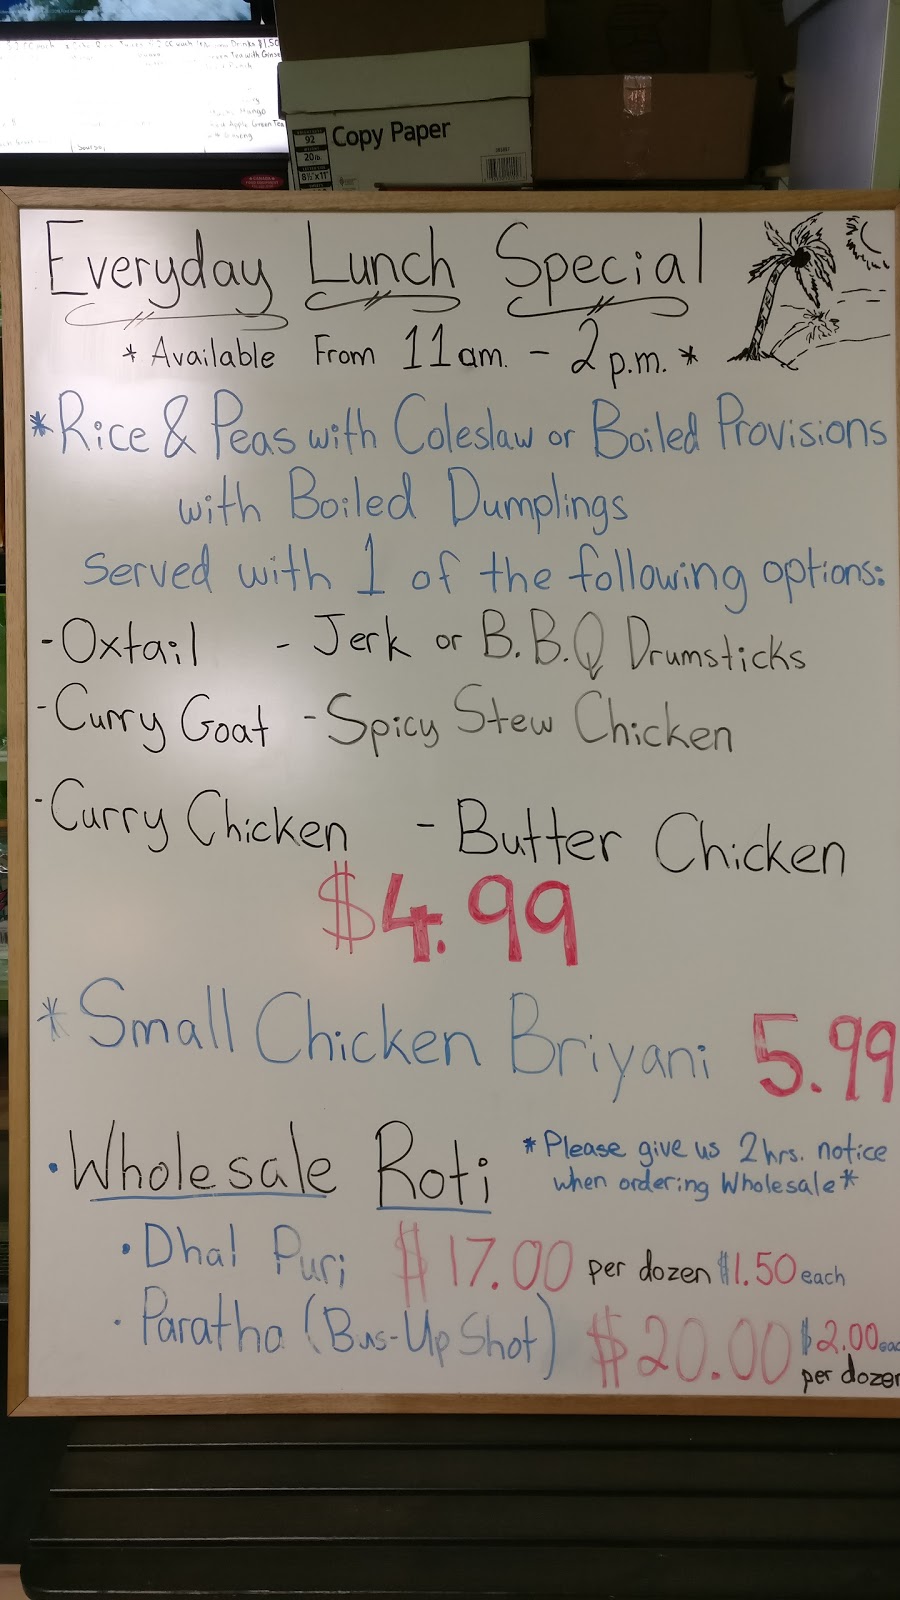 Copy Paper
92
20 lb.
8½"x11"
Everyday Lunch Special
* Available From 11am. - 2p.m. *
* Rice & Peas with Coleslaw or Boiled Provisions
with Boiled Dumplings
Served with 1 of the following options:
- Oxtail - Jerk or B.B.Q Drumsticks
- Curry Goat - Spicy Stew Chicken
- Curry Chicken - Butter Chicken
$4.99
* Small Chicken Briyani 5.99
• Wholesale Roti
* Please give us 2hrs. notice
when ordering Wholesale *
• Dhal Puri $17.00 per dozen $1.50 each
• Paratha (Bus-Up Shot) $20.00 $2.00
per dozen